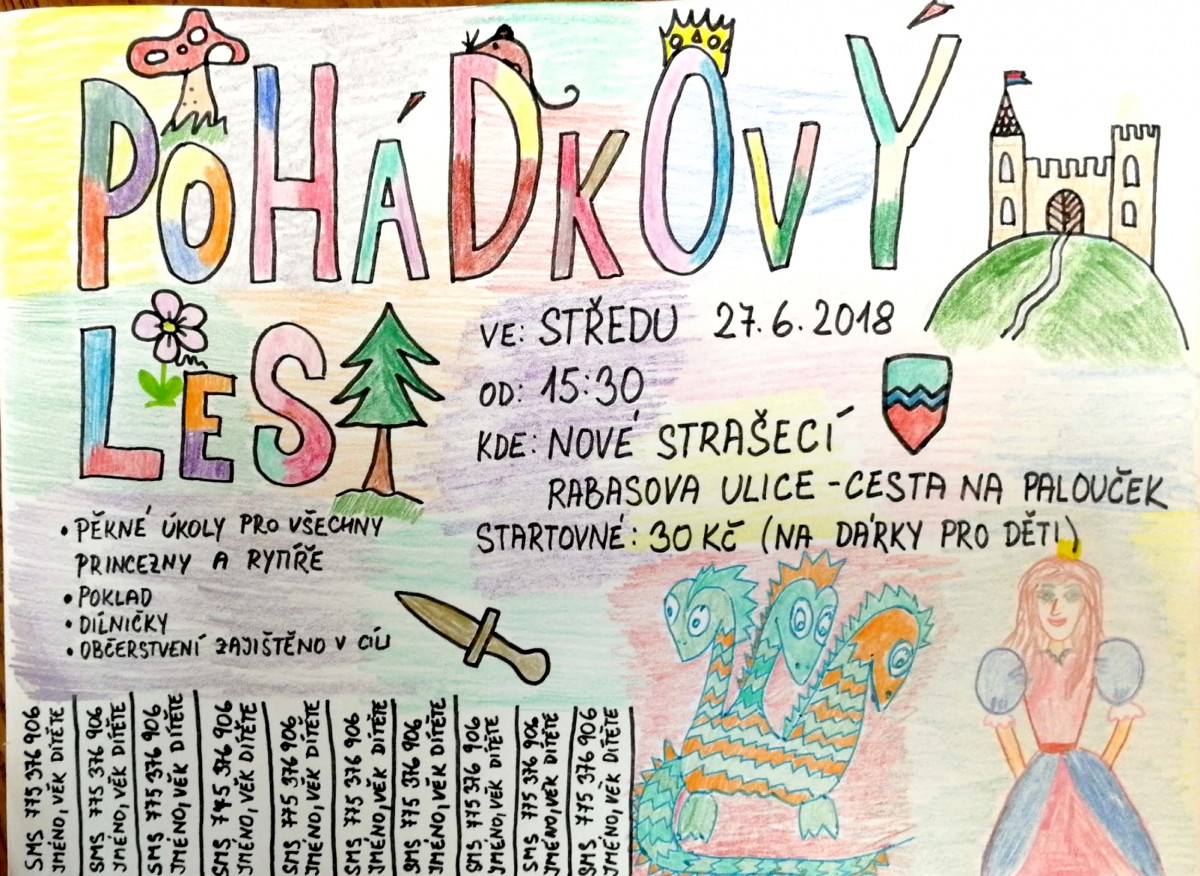 POHÁDKOVÝ
LES
VE: STŘEDU 27.6.2018
OD: 15:30
KDE: NOVÉ STRAŠECÍ
RABASOVA ULICE - CESTA NA PALOUČEK
STARTOVNÉ: 30 KČ (NA DÁRKY PRO DĚTI)
• PĚKNÉ ÚKOLY PRO VŠECHNY
PRINCEZNY A RYTÍŘE
• POKLAD
• DÍLNIČKY
• OBČERSTVENÍ ZAJIŠTĚNO V CÍLI
SMS 775 376 906
JMÉNO, VĚK DÍTĚTE
SMS 775 376 906
JMÉNO, VĚK DÍTĚTE
SMS 775 376 906
JMÉNO, VĚK DÍTĚTE
SMS 745 376 906
JMÉNO, VĚK DÍTĚTE
SMS 775 376 906
JMÉNO, VĚK DÍTĚTE
SMS 775 376 906
JMÉNO, VĚK DÍTĚTE
SMS 775 376 906
JMÉNO, VĚK DÍTĚTE
SMS 775 376 906
JMÉNO, VĚK DÍTĚTE
SMS 775 376 906
JMÉNO, VĚK DÍTĚTE
SMS 775 376 906
JMÉNO, VĚK DÍTĚTE